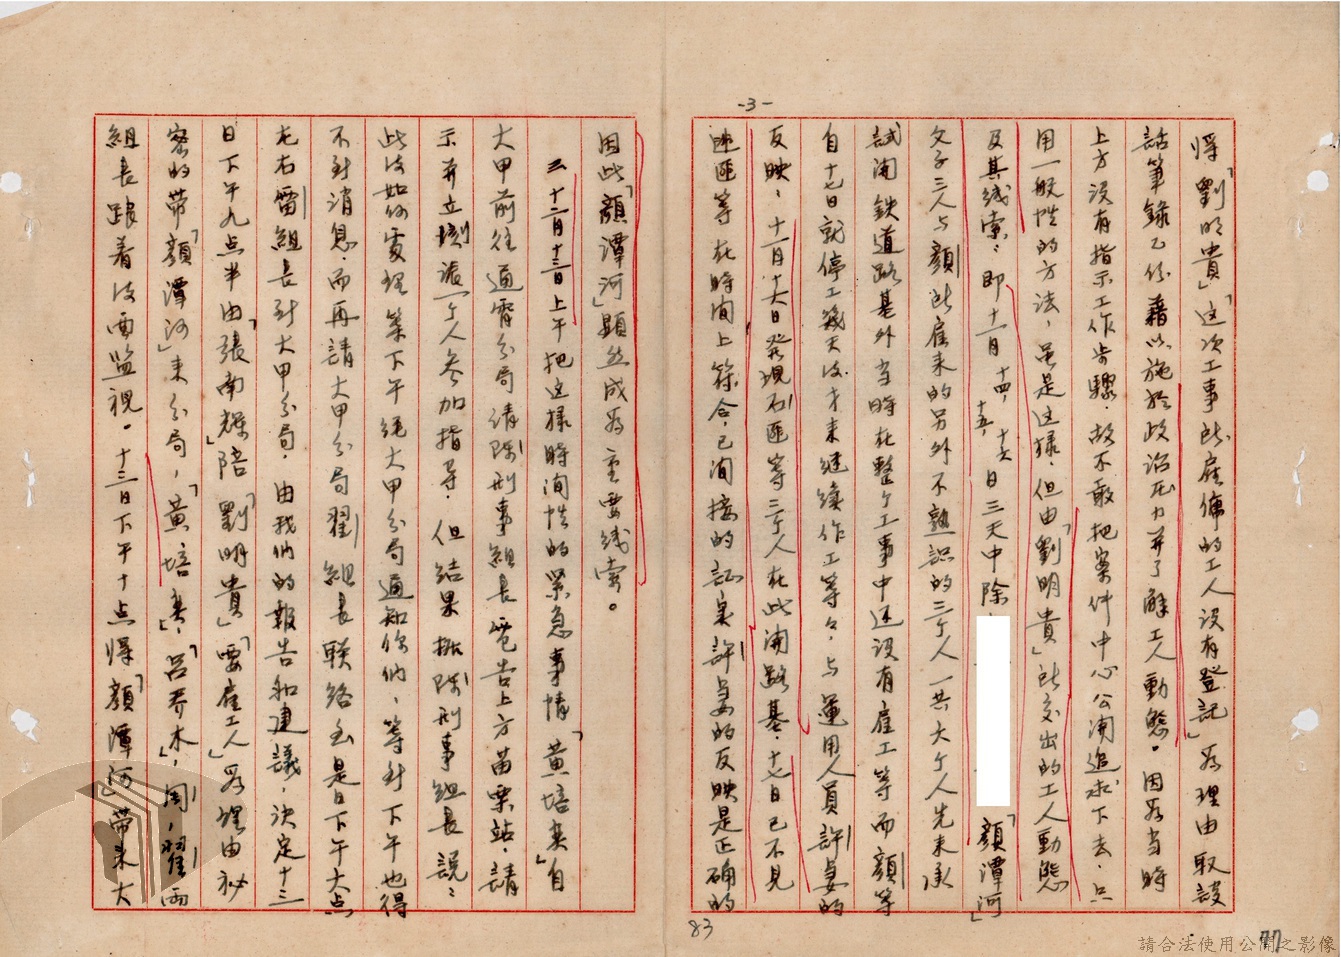 -3-
將「劉明貴」「这次工事所雇傭的工人没有登記」为理由取談
話筆錄乙份藉以施於政治压力并了解工人動態。因为当時
上方没有指示工作步驟．故不敢把案件中心公開追求下去．只
用一般性的方法，虽是这樣．但由「劉明貴」所交出的工人動態
及其线索：即十一月十四，十五，十六，日三天中除「顏潭河」
父子三人与顏所雇来的另外不熟識的三个人一共六个人先来承
試開鉄道路基外当時在整个工事中还没有雇工等而顏等
自十七日就停工幾天後才来继續作工等々，与運用人員許𡛼的
反映：十一月十六日發現石匪等三个人在此開路基．十七日已不見
匪等在時间上符合，已间接的証实許𡛼的反映是正确的
因此「顏潭河」顯然成为重要线索。
三 十二月十三日上午把这樣時间性的緊急事情「黄培英」自
大甲前往通霄分局請陈刑事組長苞告上方苗栗站．請
示并立刻派一个人参加指导．但结果据陈刑事組長說：
此後如何處理箕下午経大甲分局通知你们，等到下午也得
不到消息．而再請大甲分局翟組長联络於是日下午六点
左右雷組長到大甲分局．由我们的報告和建議．决定十三
日下午九点半由「張南輝」陪「劉明貴」「要雇工人」为理由秘
密的带「顏潭河」来分局，「黄培英」，「呂乔木」，周，翟兩
組長跟着後面监視。十三日下午十点將「顏潭河」带来大
83
77
請合法使用公開之影像